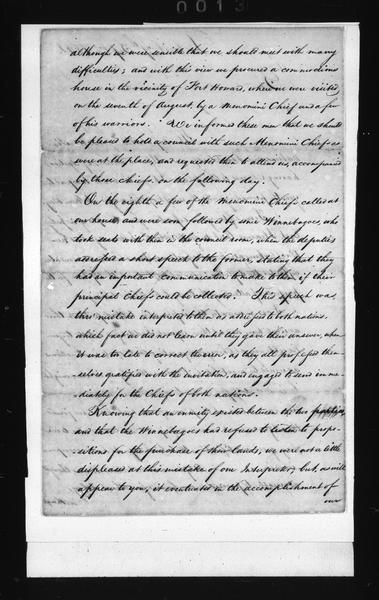 0013
although we were sensible that we should meet with many
difficulties; and with this view we procured a commodious
house in the vicinity of Fort Howard, where we were visited
on the seventh of August, by a Menomini Chief and a few
of his warriors. We informed these men that we should
be pleased to hold a council with such Menomini Chiefs as
were at the place, and requested them to attend us, accompanied
by those chiefs on the following day.
On the eighth a few of the Menomini Chiefs called at
our house, and were soon followed by some Winnebagoes, who
took seats with them in the council room, when the deputies
addressed a short speech to the former, stating that they
had an important communication to make to them if their
principal Chiefs could be collected. This speech was
thro' mistake interpreted to them as addressed to both nations,
which fact we did not learn until they gave their answer, when
it was too late to correct the error, as they all professed them
selves gratified with the invitation, and engaged to send imme
diately for the Chiefs of both nations.
Knowing that an enmity existed between the two
and that the Winnebagoes had refused to listen to propo
sitions for the purchase of their lands, we were not a little
displeased at this mistake of our Interpreter; but, as will
appear to you, it eventuated in the accomplishment of
our